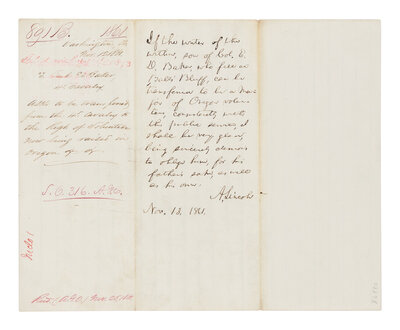 891 B. 1861
Washington
Nov. 12th
2d Lieut. E D Baker,
1st Cavalry
Asks to be transferred
from the 1st Cavalry to
the Regt of Volunteers
now being raised in
Oregon
S.O. 316. A.G.O.
Recd. (A.G.O.) Nov. 25, 1861
If the writer of the
within, son of Col. E.
D. Baker, who fell at
Ball's Bluff, can be
transferred to be a Ma-
jor of Oregon volun-
teers, consistently with
the public service, I
shall be very glad,
being sincerely desirous
to oblige him, for his
father's sake, as well
as his own.
A. Lincoln
Nov. 13, 1861.